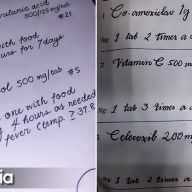 vulanic acid
500/125 mg/tab
#21
with food
hours for 7 days
ol 500 mg/tab #5
one with food
4 hours as needed
fever (temp. > 37.8
ia
1 Co-amoxiclav 1g
1 tab 2 times a d
2 Vitamin C 500 m
1 tab 3 times a d
3 Celecoxib 200 m
1 tab 2 times a